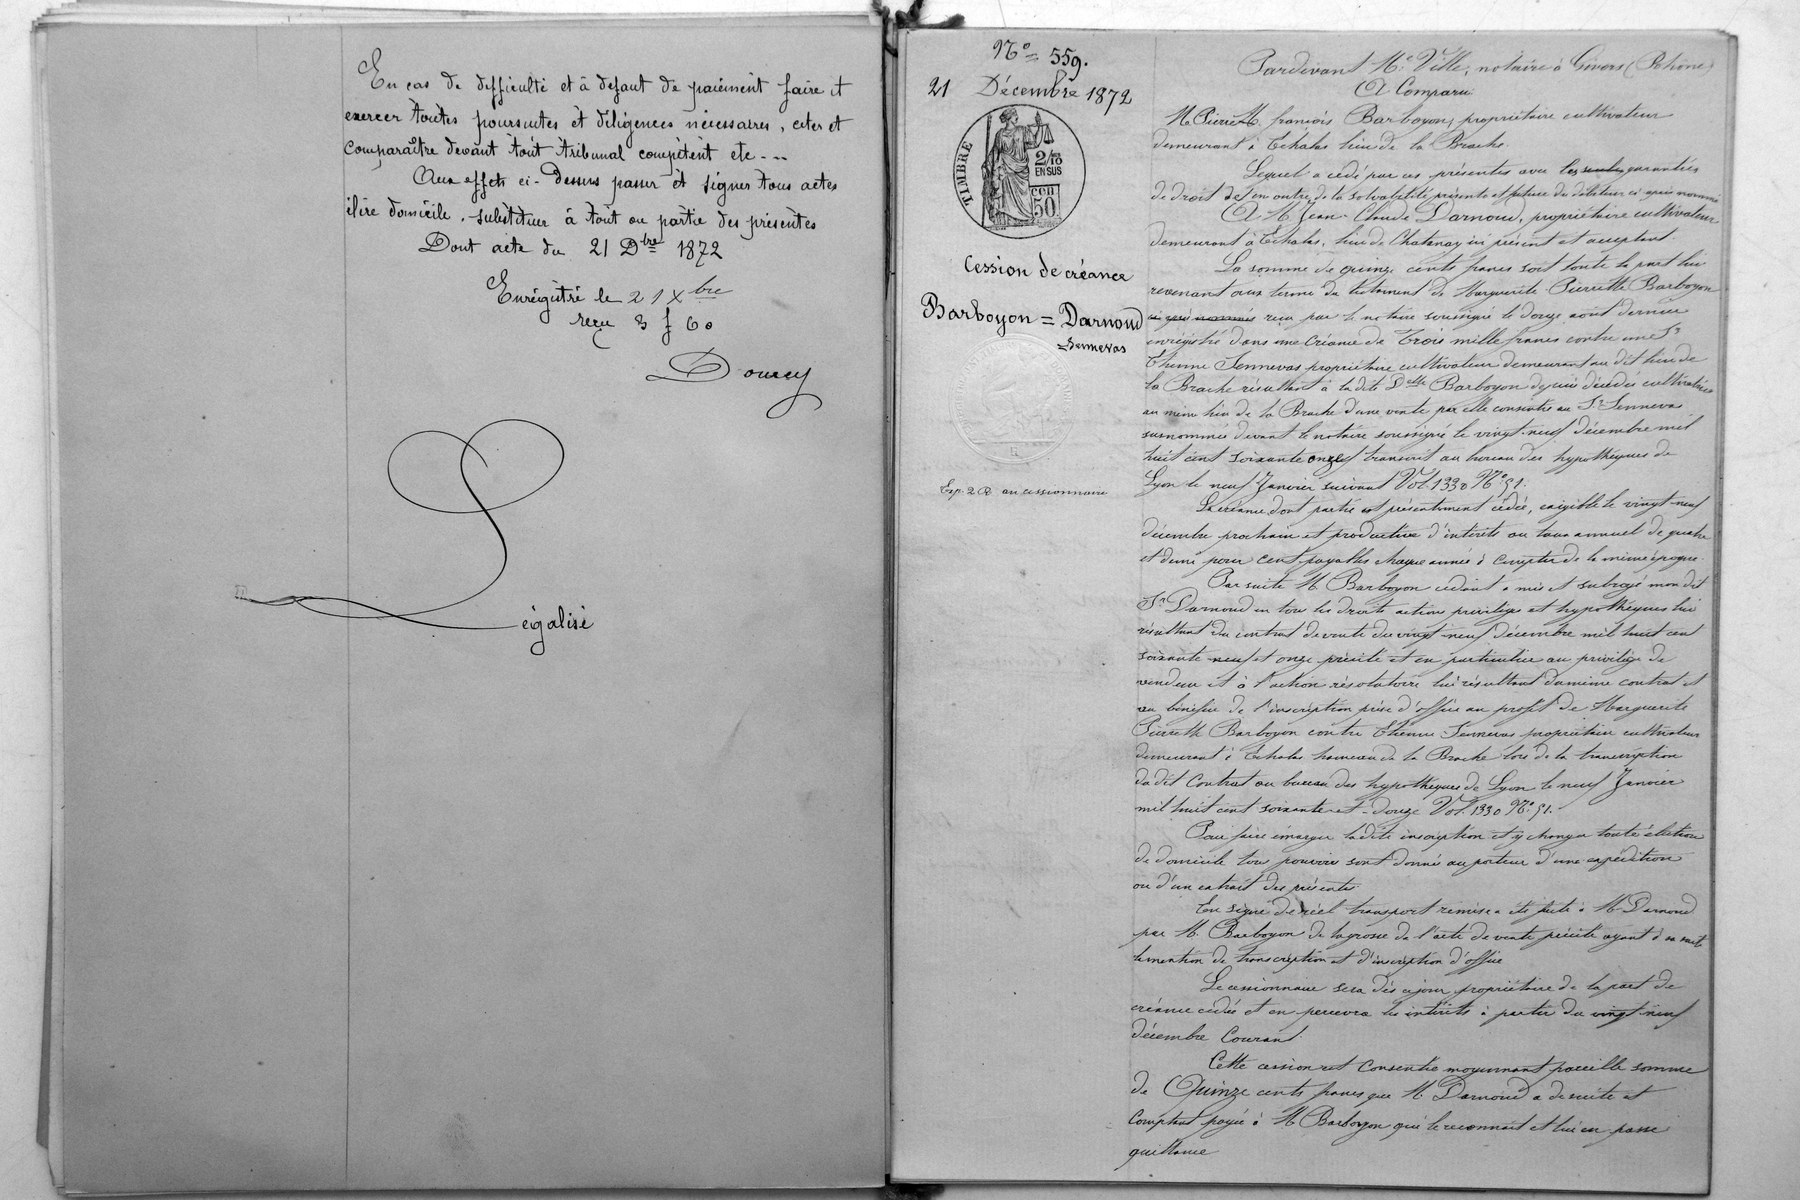 En cas de difficulté et à défaut de paiement faire et
exercer toutes poursuites et diligences nécessaires, citer et
comparaître devant tout tribunal compétent etc ---
Aux effets ci-dessus passer et signer tous actes
élire domicile, substituer à tout ou partie des présentes
Dont acte du 21 Dbre 1872
Enrégistré le 21 Xbre
reçu 3 f 60
Légalisé
No 559.
21 Décembre 1872
TIMBRE
2/10
EN SUS
cen
50
Cession de créance
Barboyon = Darnoud
=Sennevas
Exp. 2 R au cessionnaire
Pardevant Me Ville, notaire à Givors (Rhône)
A Comparu
M. Pierre M. françois Barboyon, propriétaire cultivateur
demeurant à Echalas lieu de la Brache.
Lequel a cédé par ces présentes avec garanties
de droit et en outre de la solvabilité présente et future du débiteur ci après nommé
A M. Jean-Claude Darnoud, propriétaire cultivateur
demeurant à Echalas, lieu de Chatenay ici présent et acceptant.
La somme de quinze cents francs soit toute la part lui
revenant aux terme du testament de Marguerite Pierrette Barboyon
ci après nommés reçu par le notaire soussigné le douze août dernier
enregistré dans une créance de Trois mille francs contre une Sr
Etienne Sennevas propriétaire cultivateur demeurant au dit lieu de
la Brache résultant à la dite Delle Barboyon depuis décédée cultivatrice
au même lieu de la Brache d'une vente par elle consentie au Sr Sennevas
susnommé devant le notaire soussigné le vingt-neuf décembre mil
huit cent soixante onze transcrit au bureau des hypothèques de
Lyon le neuf Janvier suivant Vol 1330 No 51.
La créance dont partie est présentement cédée, exigible le vingt-neuf
décembre prochain et productive d'intérêts au taux annuel de quatre
et demi pour cent payables chaque année à compter de la même époque.
Par suite M. Barboyon cédant a mis et subrogé mon dit
Sr Darnoud en tous les droits actions privilèges et hypothèques lui
résultant du contrat de vente du vingt-neuf décembre mil huit cent
soixante-neuf et onze précité et en particulier au privilège de
vendeur et à l'action résolutoire lui résultant du même contrat et
au bénéfice de l'inscription prise d'office au profit de Marguerite
Pierrette Barboyon contre Etienne Sennevas propriétaire cultivateur
demeurant à Echalas hameau de la Brache lors de la transcription
du dit Contrat au bureau des hypothèques de Lyon le neuf Janvier
mil huit cent soixante et douze Vol. 1330 No. 51.
Pour faire émarger la dite inscription et y changer toute élection
de domicile tous pouvoirs sont donnés au porteur d'une expédition
ou d'un extrait des présentes
En signe de réel transport remise a été faite à M. Darnoud
par M. Barboyon de la grosse de l'acte de vente précité ayant à sa suite
la mention de transcription et d'inscription d'office
Le cessionnaire sera dès ce jour propriétaire de la part de
créance cédée et en percevra les intérêts à partir du vingt-neuf
décembre Courant.
Cette cession est Consentie moyennant pareille somme
de Quinze cents francs que M. Darnoud a de suite et
comptant payée à M. Barboyon qui le reconnait et lui en passe
quittance